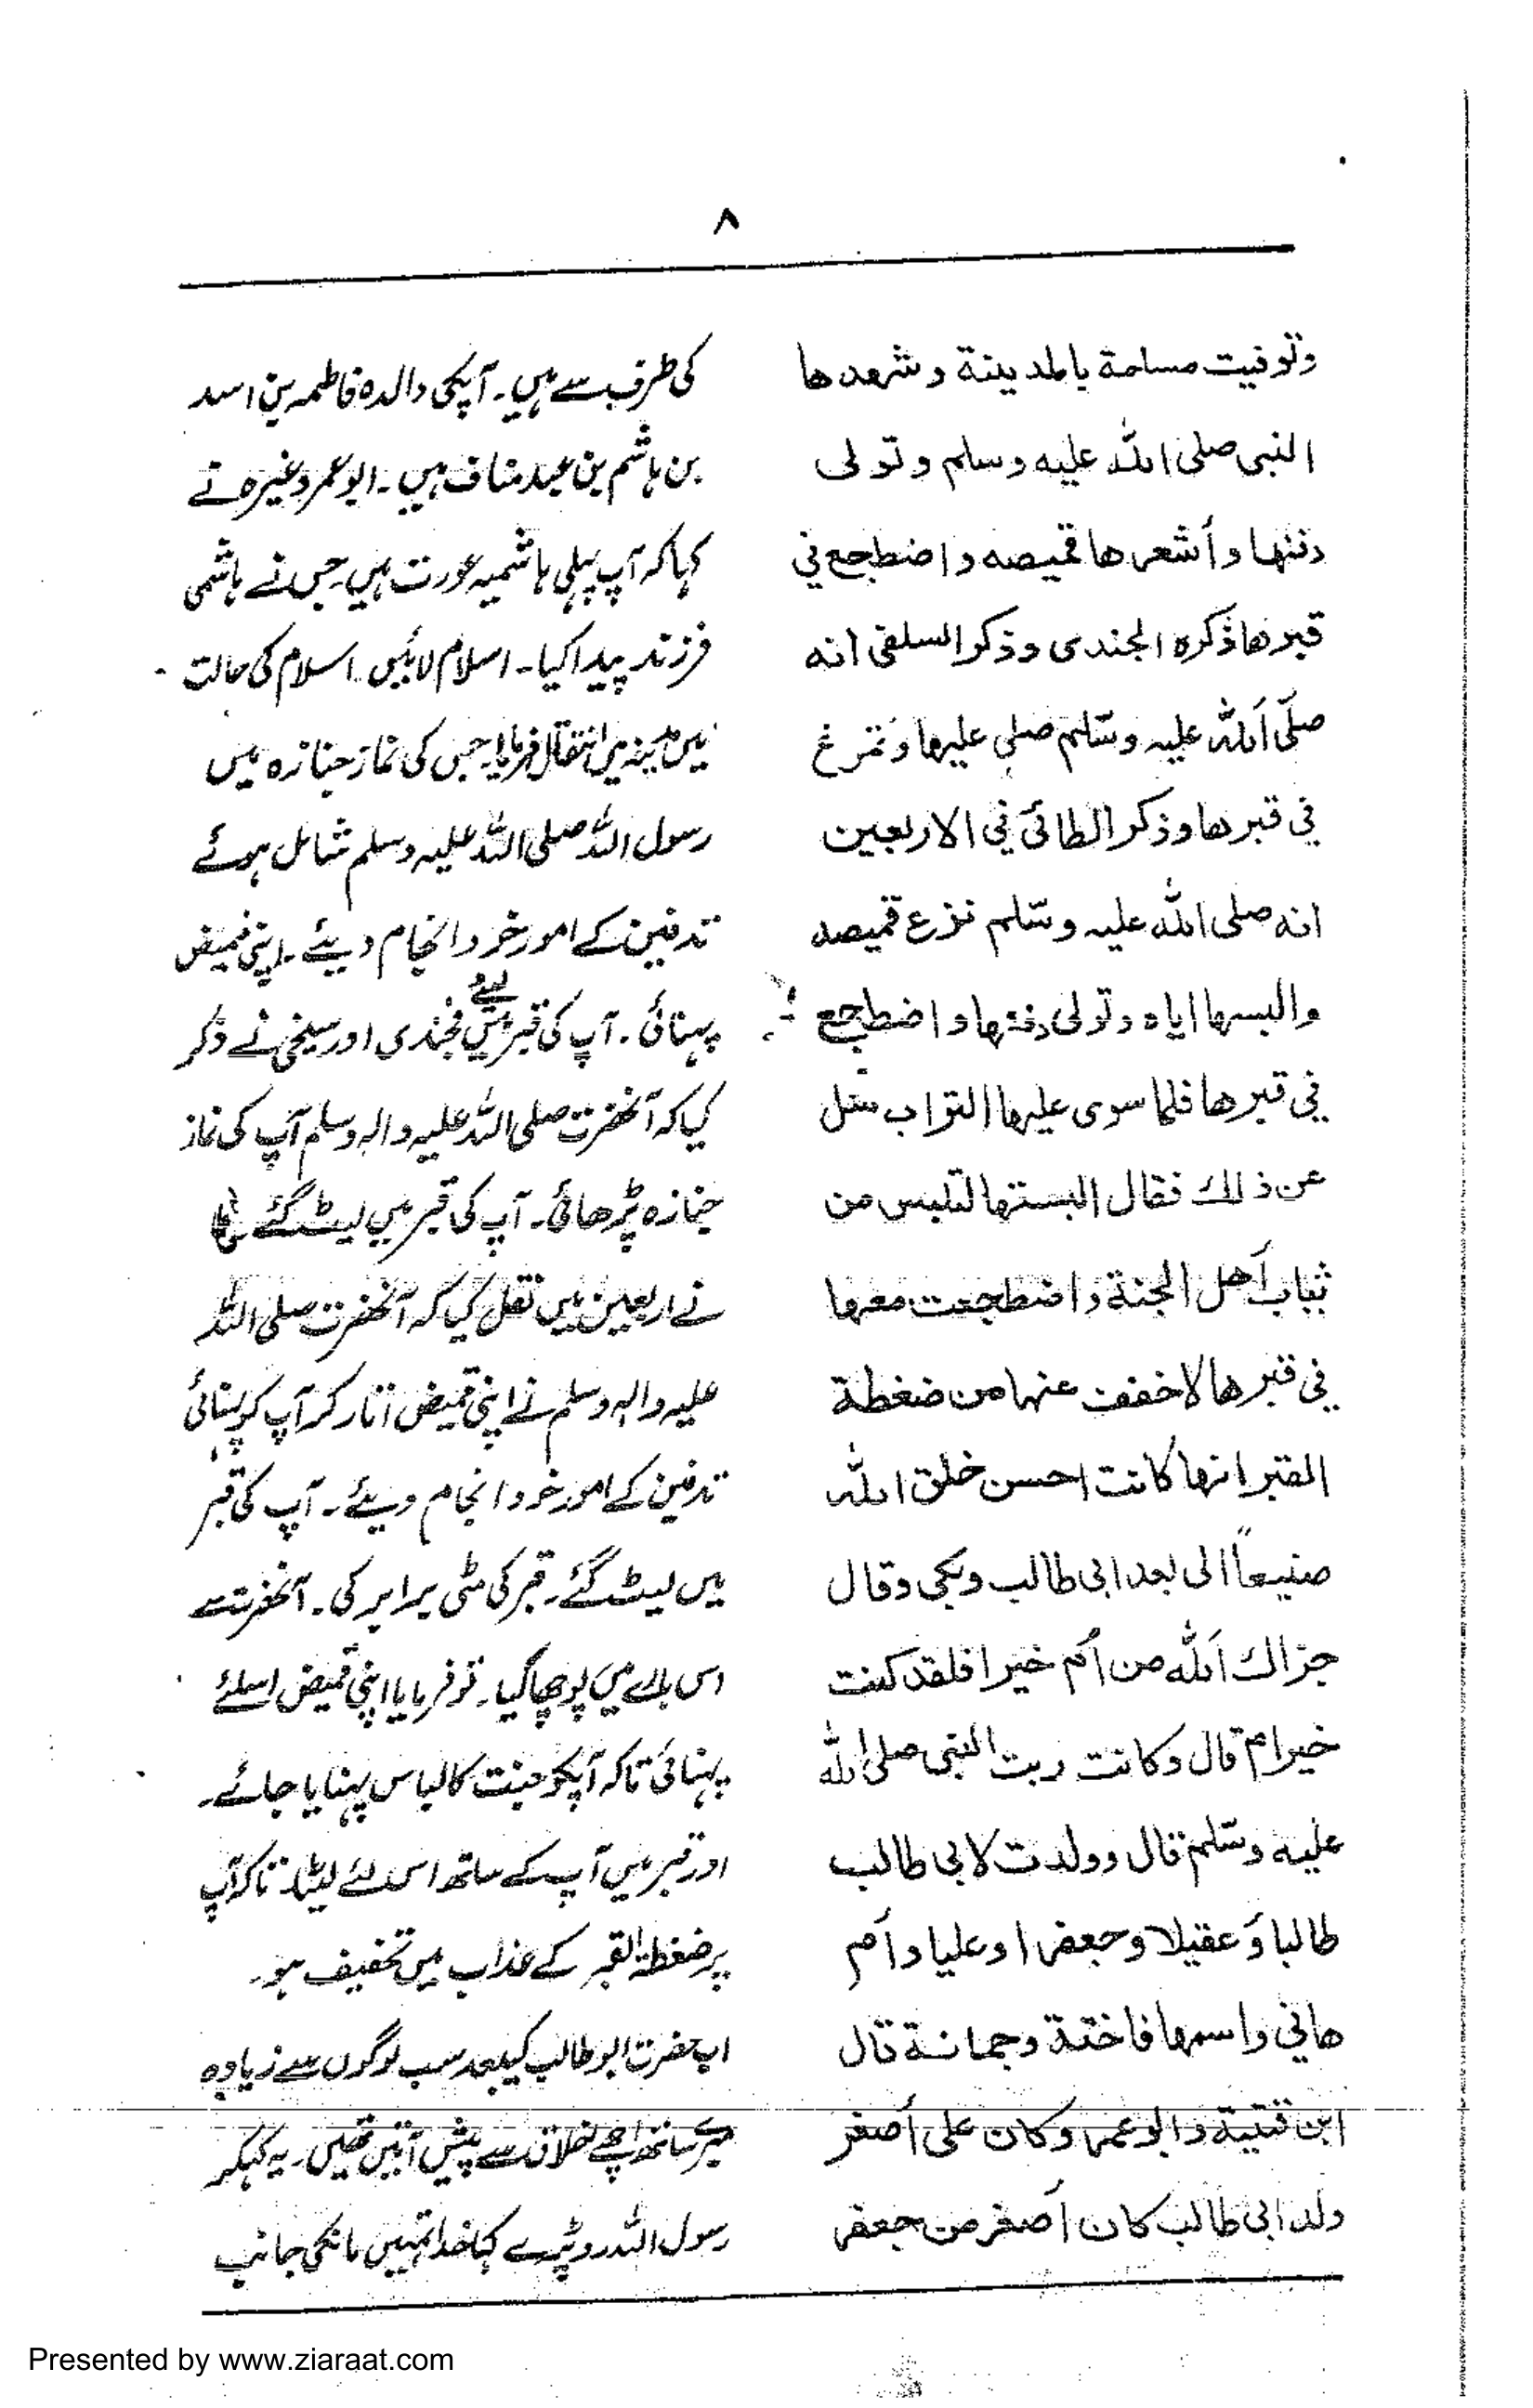 ٨
وتوفيت مسلمة بالمدينة وشهدها
النبى صلى الله عليه وسلم وتولى
دفنها وأشعرها قميصه واضطجع في
قبرها ذكره الجندى وذكر السلفى انه
صلّى الله عليه وسّلم صلى عليها وتمرغ
في قبرها وذكر الطائى في الاربعين
انه صلى الله عليه وسّلم نزع قميصه
والبسها اياه وتولى دفنها واضطجع
في قبرها فلما سوى عليها التراب سئل
عن ذلك فقال البستها لتلبس من
ثياب أهل الجنة واضطجعت معها
في قبرها لاخفف عنها من ضغطة
القبر انها كانت احسن خلق الله
صنيعاً الى بعد ابى طالب وبكى وقال
جزاك الله من أم خيرا فلقد كنت
خير ام قال وكانت ربت النبى صلى الله
عليه وسّلم قال وولدت لابى طالب
طالبا وعقيلا وجعفرا وعليا وأم
هاني واسمها فاختة وجمانة قال
ابن قتيبة وابو عمر وكان على أصغر
ولد ابى طالب كان أصغر من جعفر
کی طرف سے ہیں۔ آپکی والدہ فاطمہ بن اسد
بن ہاشم بن عبد مناف ہیں۔ ابو عمر وغیرہ نے
کہا کہ آپ پہلی ہاشمیہ عورت ہیں جس نے ہاشمی
فرزند پیدا کیا۔ اسلام لائیں۔ اسلام کی حالت
میں مدینہ میں انتقال فرمایا۔ جس کی نماز جنازہ میں
رسول اللہ صلی اللہ علیہ وسلم شامل ہوئے
تدفین کے امور خود انجام دیئے۔ اپنی قمیض
پہنائی۔ آپ کی قبر میں لیٹے اور نے ذکر
کیا کہ آنحضرت صلی اللہ علیہ والہ وسلم آپ کی نماز
جنازہ پڑھائی۔ آپ کی قبر میں لیٹ گئے
نے اربعین میں نقل کی کہ آنحضرت صلی اللہ
علیہ والہ وسلم نے اپنی قمیض اتار کر آپ کو پہنائی
تدفین کے امور خود انجام دیئے۔ آپ کی قبر
میں لیٹ گئے۔ قبر کی مٹی برابر کی۔ آنحضرت سے
اس بارے میں پوچھا گیا۔ تو فرمایا اپنی قمیض اسلئے
پہنائی تاکہ آپکو جنت کا لباس پہنایا جائے۔
اور قبر میں آپ کے ساتھ اس لئے لیٹا۔ تاکہ آپ
پر ضغطۃ القبر کے عذاب میں تخفیف ہو۔
اپ حضرت ابو طالب کیبعد سب لوگوں سے زیادہ
میرے ساتھ اچھے اخلاق سے پیش آتیں تھیں۔ یہ کہکر
رسول اللہ رو پڑے کہا خدا تمہیں ماں کی جانب
Presented by www.ziaraat.com